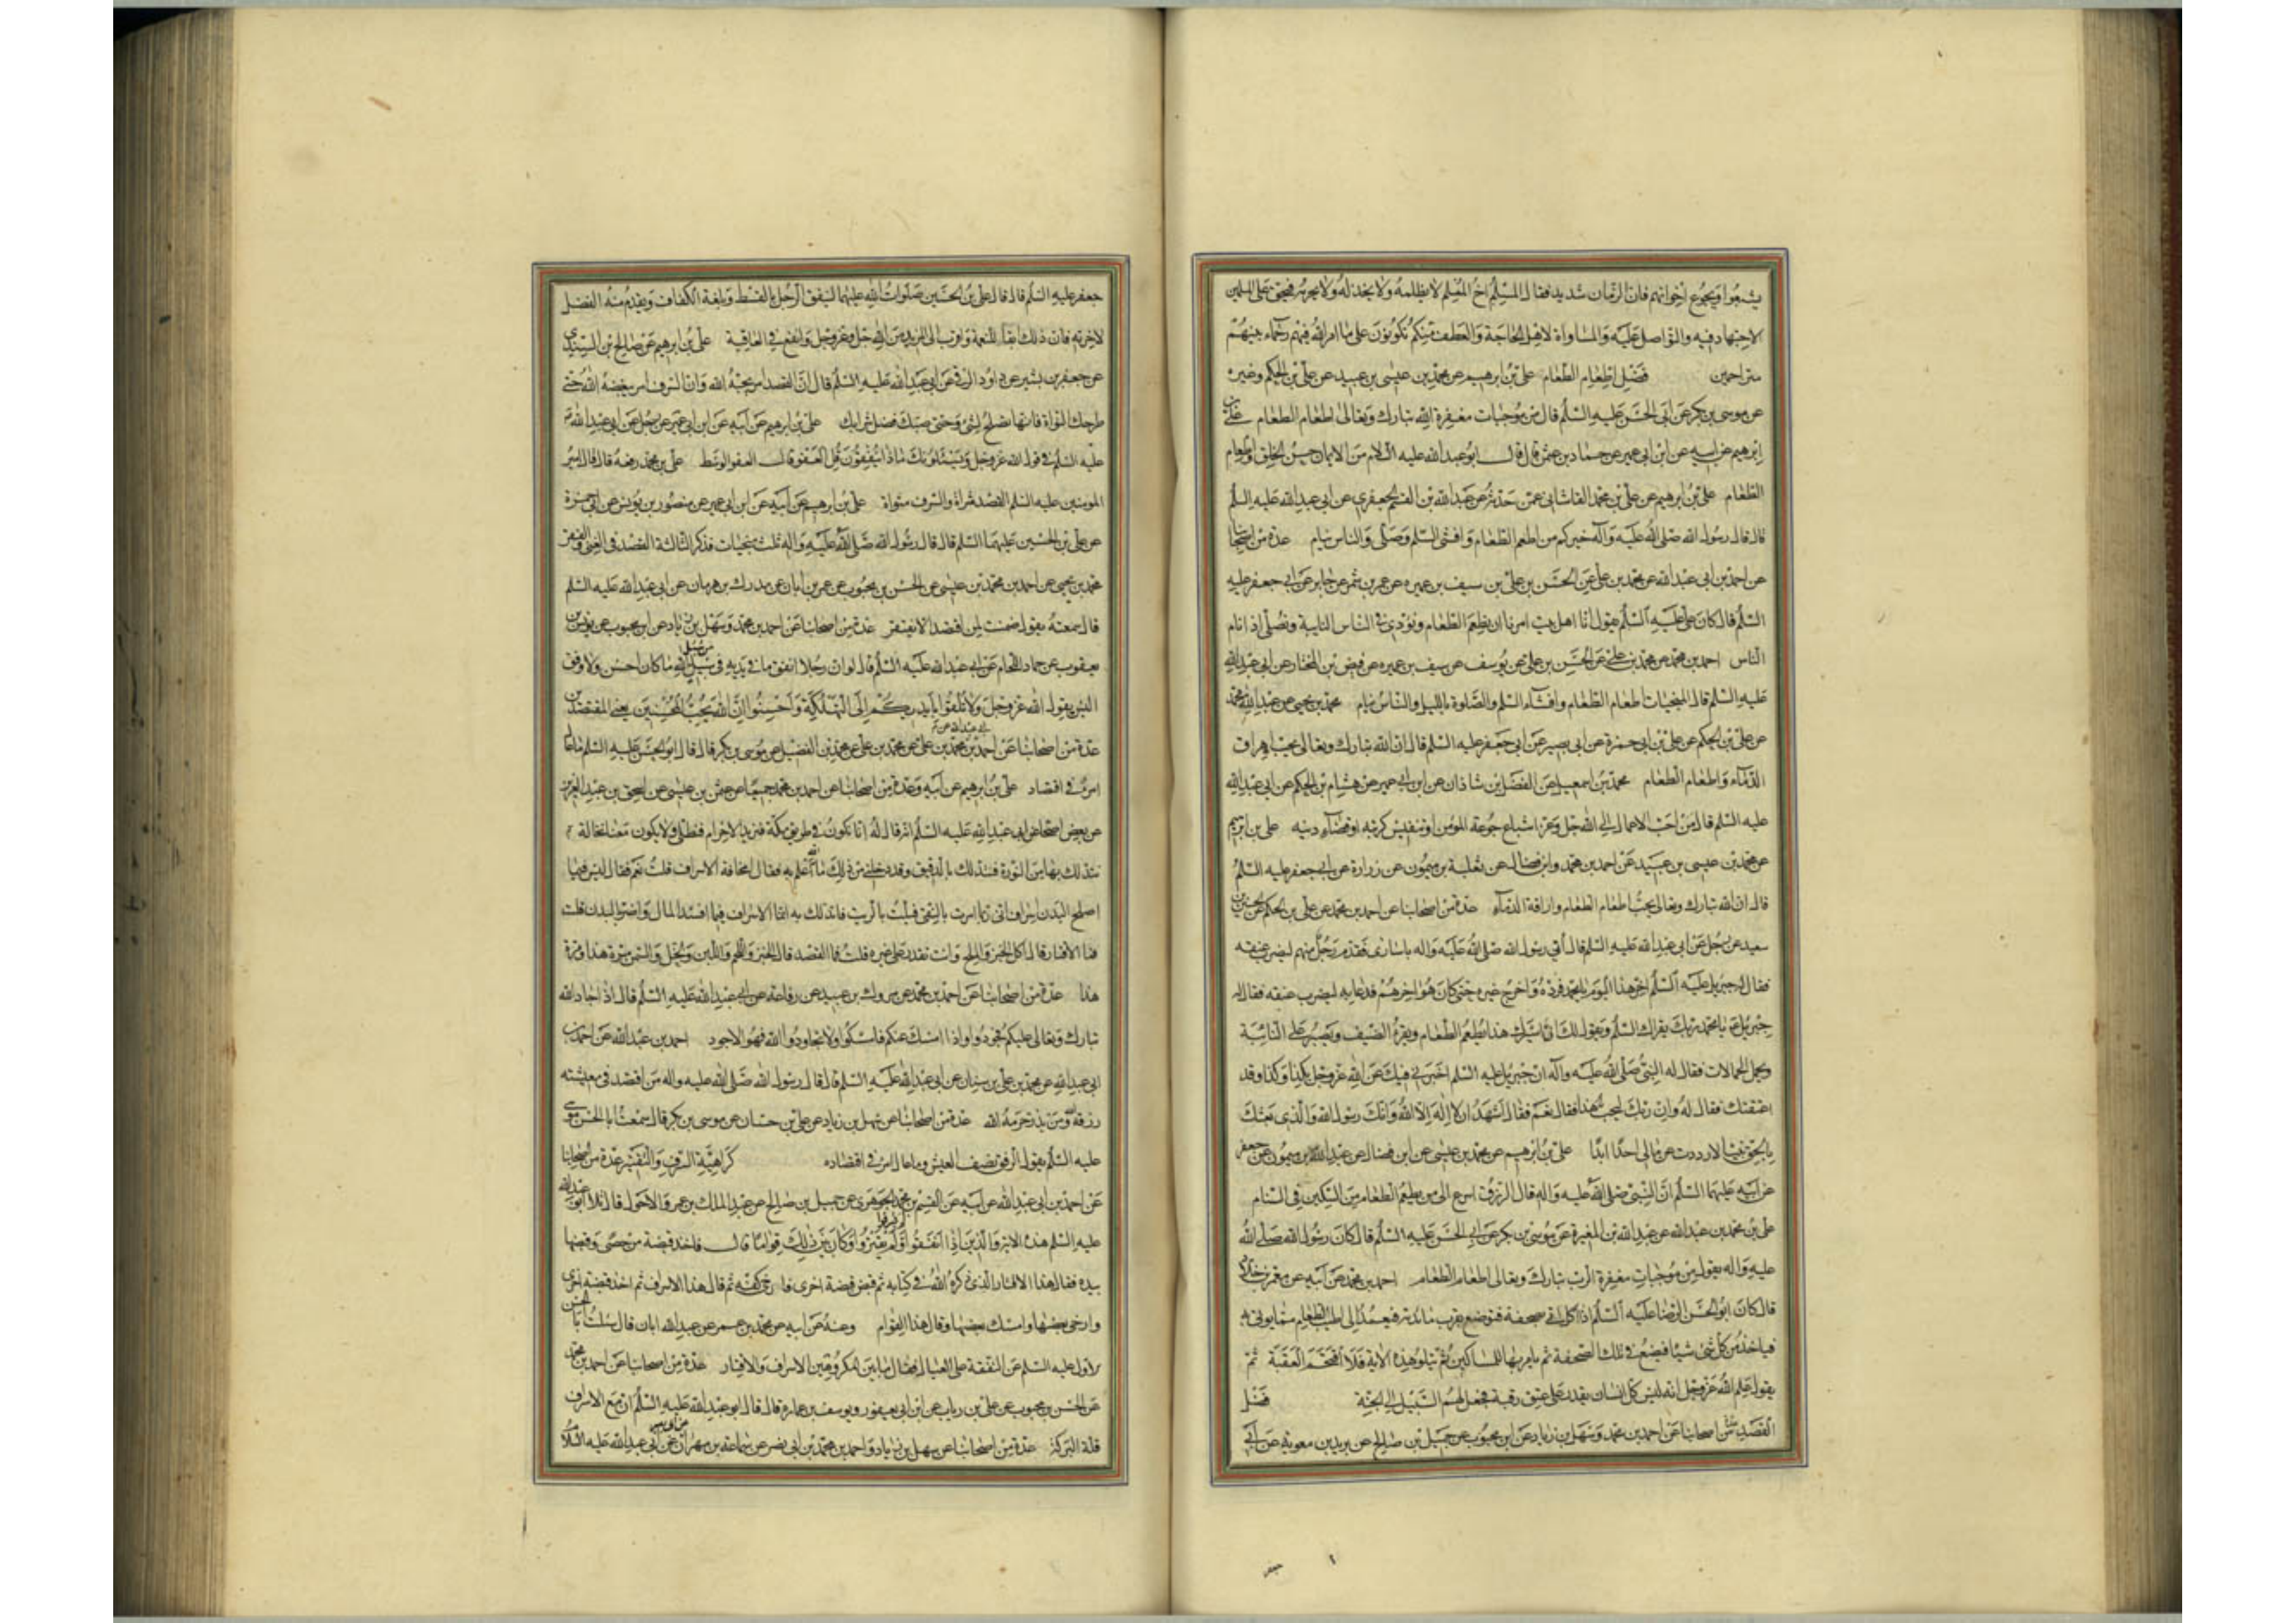 يشبعوا ويجوع اخوانهم فان الزمان شديد فقال المسلم اخ المسلم لا يظلمه ولا يخذله ولا يحرمه فيحق على المسلمين
الاجتهاد فيه والتواصل عليه والمساواة لاهل الحاجة والعطف منكم تكونون على ما امر الله فيهم رحماء بينهم
متراحمين فضل اطعام الطعام علي بن ابرهيم عن محمد بن عيسى بن عبيد عن علي بن الحكم وغيره
عن موسى بن بكر عن ابي الحسن عليه السلم قال من موجبات مغفرة الله تبارك وتعالى اطعام الطعام علي بن
ابرهيم عن ابيه عن ابن ابي عمير عن حماد بن عثمن قال قال ابو عبد الله عليه السلام من الايمان حسن الخلق واطعام
الطعام علي بن ابرهيم عن علي بن محمد القاشاني عمن حدثه عن عبد الله بن القسم الجعفري عن ابي عبد الله عليه السلم
قال قال رسول الله صلى الله عليه وآله خيركم من اطعم الطعام وافشى السلم وصلى والناس نيام عدة من اصحابنا
عن احمد بن ابي عبد الله عن محمد بن علي عن الحسن بن علي بن سيف بن عميره عن عمر بن شمر عن جابر عن ابي جعفر عليه
السلم قال كان علي عليه السلم يقول انا اهل بيت امرنا ان نطعم الطعام ونؤدي في الناس النايبة ونصلي اذا نام
الناس احمد بن محمد عن محمد بن علي عن الحسن بن علي عن يوسف عن سيف بن عميره عن فيض بن المختار عن ابي عبد الله
عليه السلم قال المنجيات اطعام الطعام وافشاء السلم والصلوة بالليل والناس نيام محمد بن يحيى عن عبد الله بن محمد
عن علي بن الحكم عن علي بن ابي حمزة عن ابي بصير عن ابي جعفر عليه السلم قال ان الله تبارك وتعالى يحب اهراق
الدماء واطعام الطعام محمد بن اسمعيل عن الفضل بن شاذان عن ابن ابي عمير عن هشام بن الحكم عن ابي عبد الله
عليه السلم قال من احب الاعمال الى الله جل وعز اشباع جوعة المؤمن او تنفيس كربته او قضاء دينه علي بن ابرهيم
عن محمد بن عيسى بن عبيد عن احمد بن محمد وابن فضال عن ثعلبة بن ميمون عن زرارة عن ابي جعفر عليه السلم
قال ان الله تبارك وتعالى يحب اطعام الطعام واراقة الدماء عدة من اصحابنا عن احمد بن محمد عن علي بن الحكم عن الحسين بن
سعيد عن رجل عن ابي عبد الله عليه السلم قال اتي رسول الله صلى الله عليه واله باسارى فقدم رجل منهم ليضرب عنقه
فقال له جبريل عليه السلم اخر هذا اليوم يا محمد فرده واخرج غيره حتى كان هو اخرهم فدعا به ليضرب عنقه فقال له
جبريل يا محمد ربك يقرئك السلم ويقول لك ان اسيرك هذا يطعم الطعام ويقري الضيف ويصبر على النائبة
ويحمل الحمالات فقال له النبي صلى الله عليه وآله ان جبريل عليه السلم اخبرني فيك عن الله عز وجل بكذا وكذا وقد
اعتقتك فقال له وان ربك ليحب هذا فقال نعم فقال اشهد ان لا اله الا الله وانك رسول الله والذي بعثك
بالحق نبيا لا رددت عن مالي احدا ابدا علي بن ابرهيم عن محمد بن عيسى عن ابن فضال عن عبد الله بن ميمون عن جعفر
عن ابيه عليهما السلم ان النبي صلى الله عليه واله قال الرزق اسرع الى من يطعم الطعام من السكين في السنام
علي بن محمد بن عبد الله عن عبد الله بن المغيرة عن موسى بن بكر عن ابي الحسن عليه السلم قال كان رسول الله صلى الله
عليه واله يقول من موجبات مغفرة الرب تبارك وتعالى اطعام الطعام احمد بن محمد عن ابيه عن معمر بن خلاد
قال كان ابو الحسن الرضا عليه السلم اذا اكل اتي بصحفة فتوضع بقرب مائدته فيعمد الى اطيب الطعام مما يؤتى به
فياخذ من كل شئ شيئا فيضع في تلك الصحفة ثم يامر بها للمساكين ثم يتلو هذه الاية فلا اقتحم العقبة ثم
يقول علم الله عز وجل انه ليس كل انسان يقدر على عتق رقبة فجعل لهم السبيل الى الجنة فضل
القصد عدة من اصحابنا عن احمد بن محمد وسهل بن زياد عن ابن محبوب عن جميل بن صالح عن بريد بن معوية عن ابي
جعفر
جعفر عليه السلم قال قال علي بن الحسين صلوات الله عليهما لينفق الرجل بالقسط وبلغة الكفاف ويقدم منه الفضل
لاخرته فان ذلك ابقا للنعمة واقرب الى المزيد من الله جل وعز وجل وانفع في العاقبة علي بن ابرهيم عن صالح بن السندي
عن جعفر بن بشير عن داود الرقي عن ابي عبد الله عليه السلم قال ان القصد امر يحبه الله وان السرف امر يبغضه الله حتى
طرحك النواة فانها تصلح لشئ وحتى صبك فضل شرابك علي بن ابرهيم عن ابيه عن ابن ابي عمير عن رجل عن ابي عبد الله
عليه السلم في قول الله عز وجل ويسئلونك ماذا ينفقون قل العفو قال العفو الوسط علي بن محمد رفعه قال قال امير
المومنين عليه السلم القصد مثراة والسرف متواة علي بن ابرهيم عن ابيه عن ابن ابي عمير عن منصور بن يونس عن ابي حمزة
عن علي بن الحسين عليهما السلم قال قال رسول الله صلى الله عليه واله ثلث منجيات فذكر الثالثة القصد في الغنى والفقر
محمد بن يحيى عن احمد بن محمد بن عيسى عن الحسن بن محبوب عن عمر بن ابان عن مدرك بن هرمان عن ابي عبد الله عليه السلم
قال سمعته يقول ضمنت لمن اقتصد الا يفتقر عدة من اصحابنا عن احمد بن محمد وسهل بن زياد عن ابن محبوب عن يونس بن
يعقوب عن حماد اللحام عن ابي عبد الله عليه السلم قال لو ان رجلا انفق ما في يديه في سبيل من سبل الله ما كان احسن ولا وفق
اليس يقول الله عز وجل ولا تلقوا بايديكم الى التهلكة واحسنوا ان الله يحب المحسنين يعني المقتصدين
عدة من اصحابنا عن احمد بن ابي عبد الله عن محمد بن علي عن محمد بن الفضيل عن موسى بن بكر قال قال ابو الحسن عليه السلم ما عال
امرؤ في اقتصاد علي بن ابرهيم عن ابيه وعدة من اصحابنا عن احمد بن محمد جميعا عن عثمن بن عيسى عن اسحق بن عبد العزيز
عن بعض اصحابه عن ابي عبد الله عليه السلم انه قال له انا نكون في طريق مكة فنريد الاحرام فنطلي ولا يكون معنا نخالة
نتدلك بها من النورة فنتدلك بالدقيق وقد دخلني من ذلك ما الله اعلم به فقال امخافة الاسراف قلت نعم فقال ليس فيما
اصلح البدن اسراف اني ربما امرت بالنقي فيلت بالزيت فاتدلك به انما الاسراف فيما افسد المال واضر بالبدن قلت
فما الاقتار قال اكل الخبز والملح وانت تقدر على غيره قلت فما القصد قال الخبز واللحم واللبن والخل والسمن مرة هذا ومرة
هذا عدة من اصحابنا عن احمد بن محمد عن مروك بن عبيد عن رفاعة عن ابي عبد الله عليه السلم قال اذا جاد الله
تبارك وتعالى عليكم فجودوا واذا امسك عنكم فامسكوا ولا تجاودوا الله فهو الاجود احمد بن عبد الله عن احمد بن
ابي عبد الله عن محمد بن علي بن سنان عن ابي عبد الله عليه السلم قال قال رسول الله صلى الله عليه واله من اقتصد في معيشته
رزقه الله ومن بذر حرمه الله عدة من اصحابنا عن سهل بن زياد عن علي بن حسان عن موسى بن بكر قال سمعت ابا الحسن موسى
عليه السلم يقول الرفق نصف العيش وما عال امرؤ في اقتصاده كراهية السرف والتقتير عدة من اصحابنا
عن احمد بن ابي عبد الله عن ابيه عن القسم بن محمد الجوهري عن جميل بن صالح عن عبد الملك بن عمرو الاحول قال تلا ابو عبد الله
عليه السلم هذه الاية والذين اذا انفقوا لم يسرفوا ولم يقتروا وكان بين ذلك قواما قال فاخذ قبضة من حصى وقبضها
بيده فقال هذا الاقتار الذي ذكره الله في كتابه ثم قبض قبضة اخرى فارخى كفه ثم قال هذا الاسراف ثم اخذ قبضة اخرى
وارخى بعضها وامسك بعضها وقال هذا القوام وعنه عن ابيه عن محمد بن عمر عن عبد الله ابان قال سئلت ابا الحسن
لاول عليه السلم عن النفقة على العيال فقال ما بين المكروهين الاسراف والاقتار عدة من اصحابنا عن احمد بن محمد
عن الحسن بن محبوب عن علي بن رياب عن ابن ابي يعفور ويوسف بن عماره قال قال ابو عبد الله عليه السلم ان مع الاسراف
قلة البركة عدة من اصحابنا عن سهل بن زياد واحمد بن محمد بن ابي نصر عن سماعة بن مهران عن ابي عبد الله عليه السلام